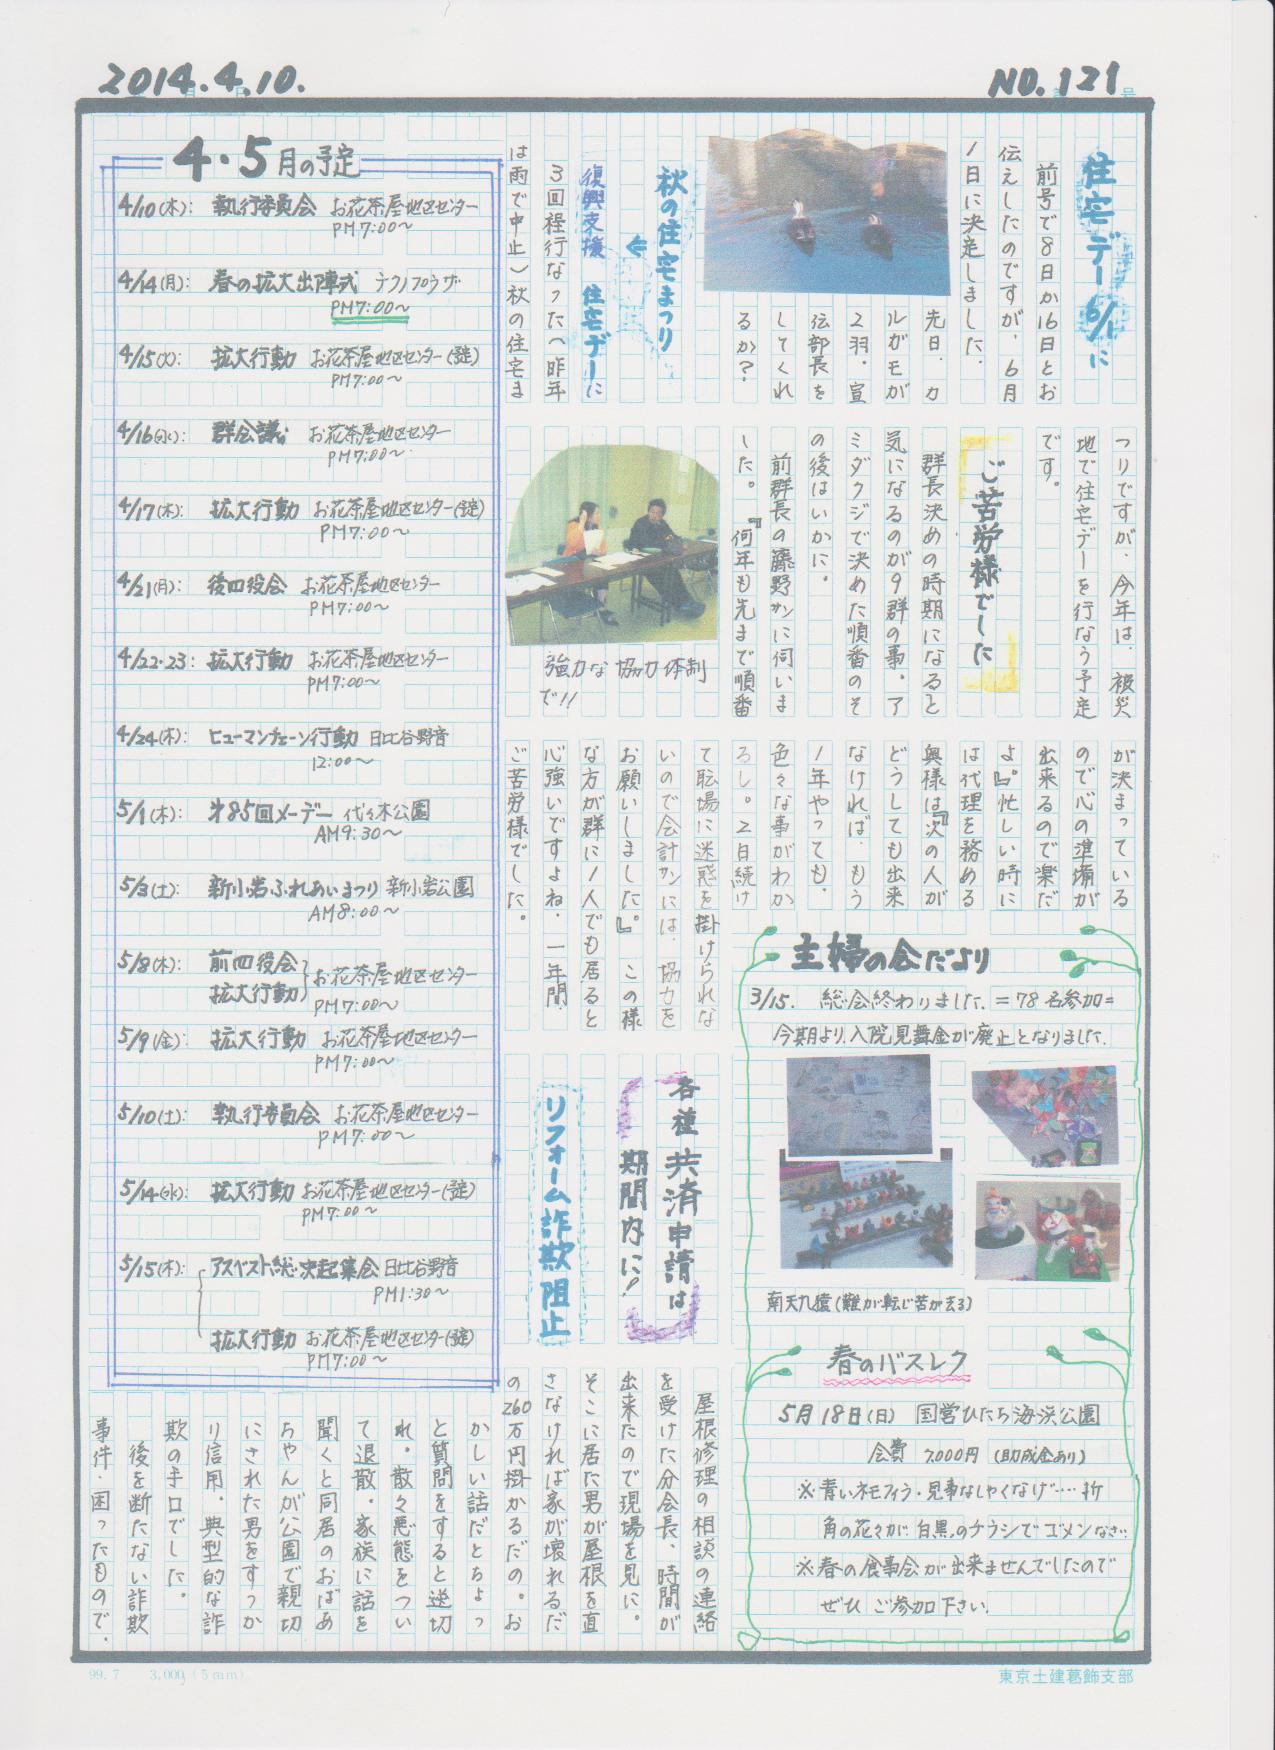 2014.4.10.
NO.121
住宅デー6/1に
前号で8日か16日とお
伝えしたのですが、6月
1日に決定しました。
先日、カ
ルガモが
2羽、宣
伝部長を
してくれ
るか?
秋の住宅まつり
⇐
復興支援 住宅デーに
3回程行なった(昨年
は雨で中止)秋の住宅ま
つりですが、今年は、被災
地で住宅デーを行なう予定
です。
ご苦労様でした
群長決めの時期になると
気になるのが9群の事。ア
ミダクジで決めた順番のそ
の後はいかに。
前群長の藤野サンに伺いま
した。『何年も先まで順番
が決まっている
ので心の準備が
出来るので楽だ
よ』。忙しい時に
は代理を務める
奥様は『次の人が
どうしても出来
なければ、もう
1年やっても、
色々な事がわか
るし。2日続け
て職場に迷惑を掛けられな
いので会計サンには、協力を
お願いしました』。この様
な方が群に1人でも居ると
心強いですよね、一年間、
ご苦労様でした。
強力な協力体制
で!!
主婦の会だより
3/15. 総会終わりました. =78名参加=
今期より、入院見舞金が廃止となりました.
南天九猿(難が転じ苦が去る)
春のバスレク
5月18日(日) 国営ひたち海浜公園
会費 7,000円 (助成金あり)
※青いネモフィラ・見事なしゃくなげ‥‥折
角の花々が白黒のチラシでゴメンなさい
※春の食事会が出来ませんでしたので
ぜひ ご参加下さい.
各種共済申請は
期間内に!
リフォーム詐欺阻止
屋根修理の相談の連絡
を受けた分会長、時間が
出来たので現場を見に。
そこに居た男が屋根を直
さなければ家が壊れるだ
の260万円掛かるだの。お
かしい話だとちょっ
と質問をすると逆切
れ。散々悪態をつい
て退散。家族に話を
聞くと同居のおばあ
ちゃんが公園で親切
にされた男をすっか
り信用。典型的な詐
欺の手口でした。
後を断たない詐欺
事件・困ったもので、
4・5月の予定
4/10(木): 執行委員会 お花茶屋地区センター
PM7:00～
4/14(月): 春の拡大出陣式 テクノプラザ
PM7:00～
4/15(火): 拡大行動 お花茶屋地区センター(錠)
PM7:00～
4/16(水): 群会議 お花茶屋地区センター
PM7:00～
4/17(木): 拡大行動 お花茶屋地区センター(錠)
PM7:00～
4/21(月): 後四役会 お花茶屋地区センター
PM7:00～
4/22・23: 拡大行動 お花茶屋地区センター
PM7:00～
4/24(木): ヒューマンチェーン行動 日比谷野音
12:00～
5/1(木): 才85回メーデー 代々木公園
AM9:30～
5/3(土): 新小岩ふれあいまつり 新小岩公園
AM8:00～
5/8(木): 前四役会
拡大行動 お花茶屋地区センター
PM7:00～
5/9(金): 拡大行動 お花茶屋地区センター
PM7:00～
5/10(土): 執行委員会 お花茶屋地区センター
PM7:00～
5/14(水): 拡大行動 お花茶屋地区センター(錠)
PM7:00～
5/15(木): アスベスト総決起集会 日比谷野音
PM1:30～
拡大行動 お花茶屋地区センター(錠)
PM7:00～
99.7 3,000 (5mm)
東京土建葛飾支部